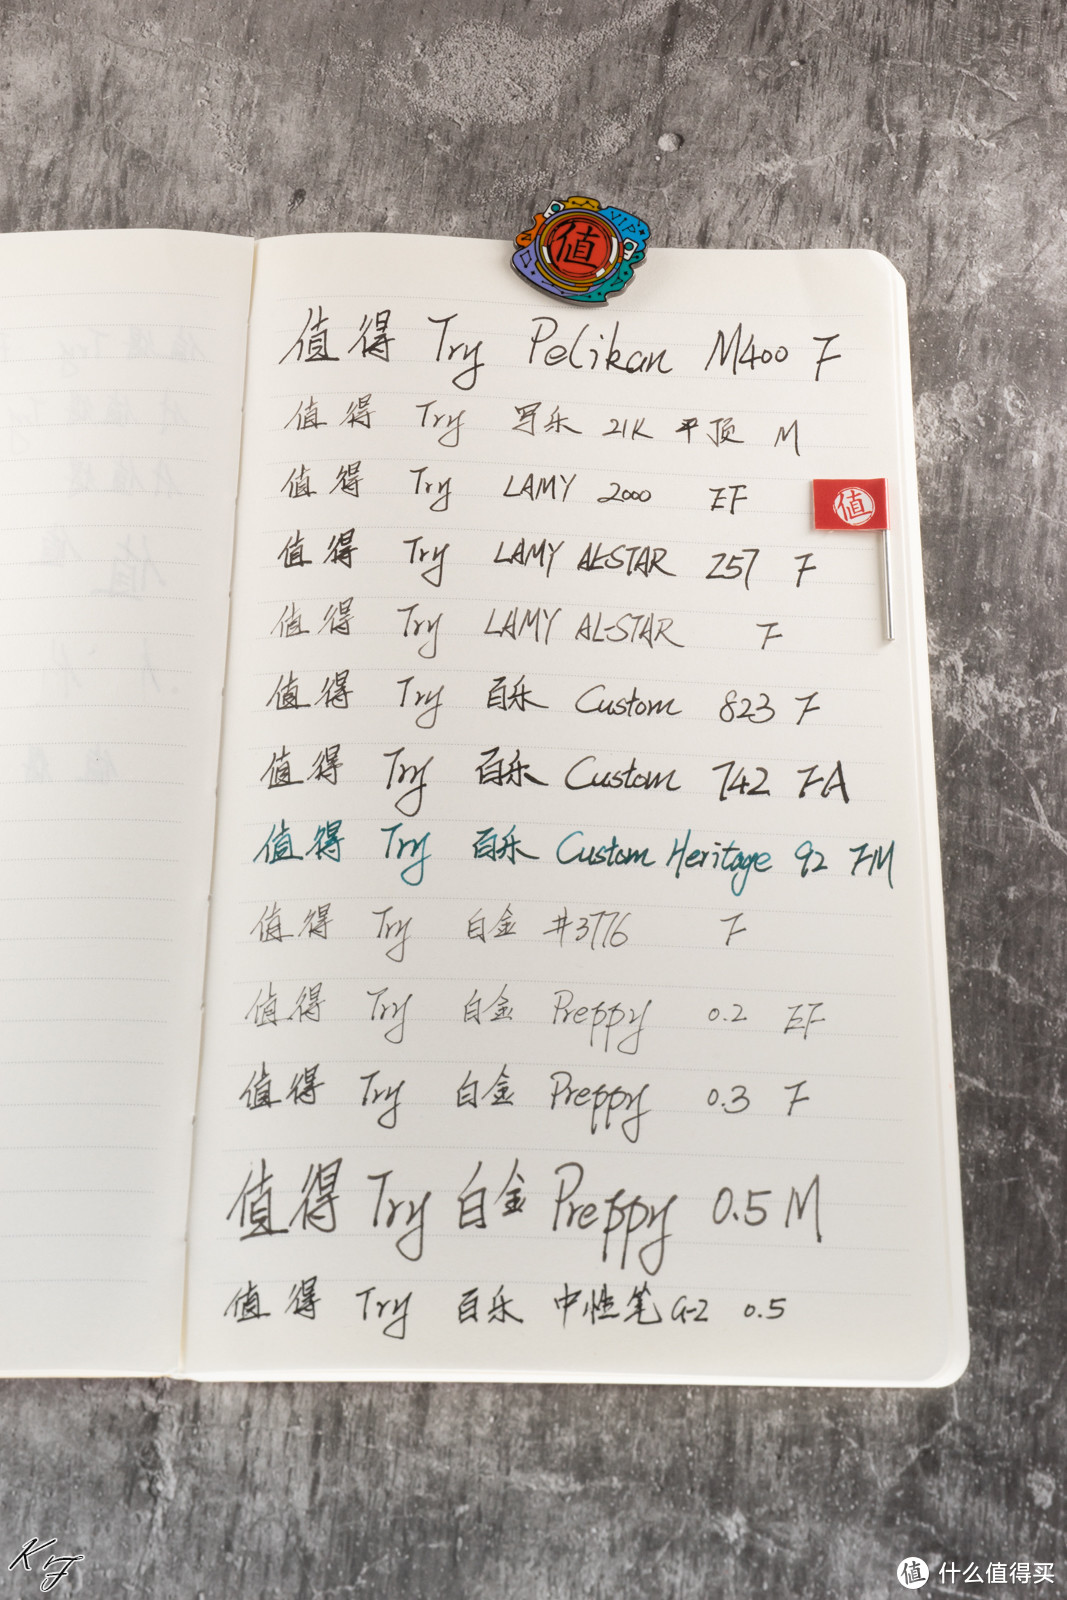 值
值得 Try Pelikan M400 F
值得 Try 写乐 21K 平顶 M
值得 Try LAMY 2000 EF
值
值得 Try LAMY AL-STAR 257 F
值得 Try LAMY AL-STAR F
值得 Try 百乐 Custom 823 F
值得 Try 百乐 Custom 742 FA
值得 Try 百乐 Custom Heritage 92 FM
值得 Try 白金 #3776 F
值得 Try 白金 Preppy 0.2 EF
值得 Try 白金 Preppy 0.3 F
值得 Try 白金 Preppy 0.5 M
值得 Try 百乐 中性笔 G-2 0.5
值 什么值得买